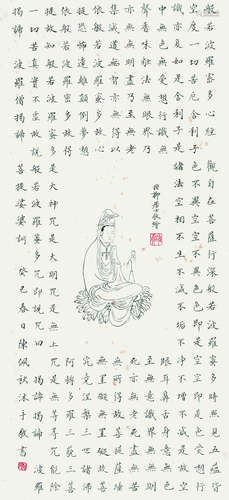 般若波羅蜜多心經觀自在菩薩行深般若波羅蜜多時照見五蘊皆
空度一切苦厄舍利子色不異空空不異色色即是空空即是色受想行
識亦復如是舍利子是諸法空相不生不滅不垢不淨不增不減是故空
中無色無受想行識無眼耳鼻舌身意無色
聲香味觸法無眼界乃至無意識界無無明
亦無無明盡乃至無老死亦無老死盡無苦
集滅道無智亦無得以無所得故菩提薩埵
依般若波羅蜜多故心
恐怖遠離顛倒夢想究竟涅槃三世諸佛
依般若波羅蜜多故得阿耨多羅三藐三菩
提故知般若波羅蜜多是大神咒是大明咒是無上咒是無等等咒能除
一切苦真實不虛故說般若波羅蜜多咒即說咒曰揭諦揭諦波羅
揭諦波羅僧揭諦菩提娑婆訶癸巳春日陳佩秋沐手敬書